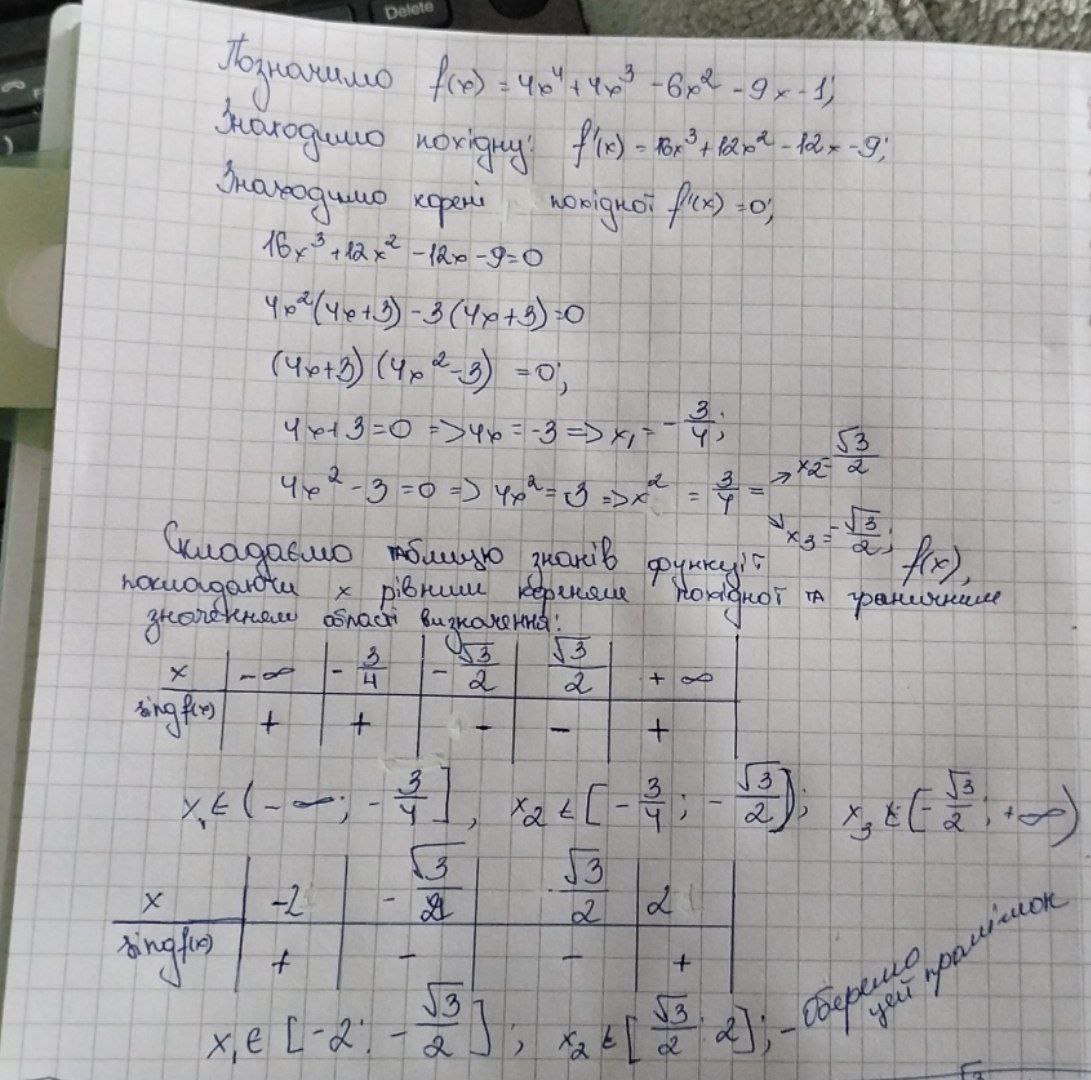 Delete
Позначимо f(x) = 4x⁴ + 4x³ - 6x² - 9x - 1;
Знаходимо похідну: f'(x) = 16x³ + 12x² - 12x - 9;
Знаходимо корені похідної f'(x) = 0;
16x³ + 12x² - 12x - 9 = 0
4x²(4x+3) - 3(4x+3) = 0
(4x+3)(4x² - 3) = 0;
4x + 3 = 0 => 4x = -3 => x₁ = -3/4;
4x² - 3 = 0 => 4x² = 3 => x² = 3/4 = → x₂ = √3/2
↘ x₃ = -√3/2;
Складаємо таблицю знаків функції f(x),
покладаючи x рівним кореням похідної та граничним
значенням області визначення:
x | -∞ | -3/4 | -√3/2 | √3/2 | +∞
sing f(x) | + | + | - | - | +
x₁ ∈ (-∞; -3/4], x₂ ∈ [-3/4; -√3/2); x₃ ∈ [-√3/2; +∞)
x | -2 | -√3/2 | √3/2 | 2
sing f(x) | + | - | - | +
x₁ ∈ [-2; -√3/2]; x₂ ∈ [√3/2; 2]; - Оберемо
цей проміжок